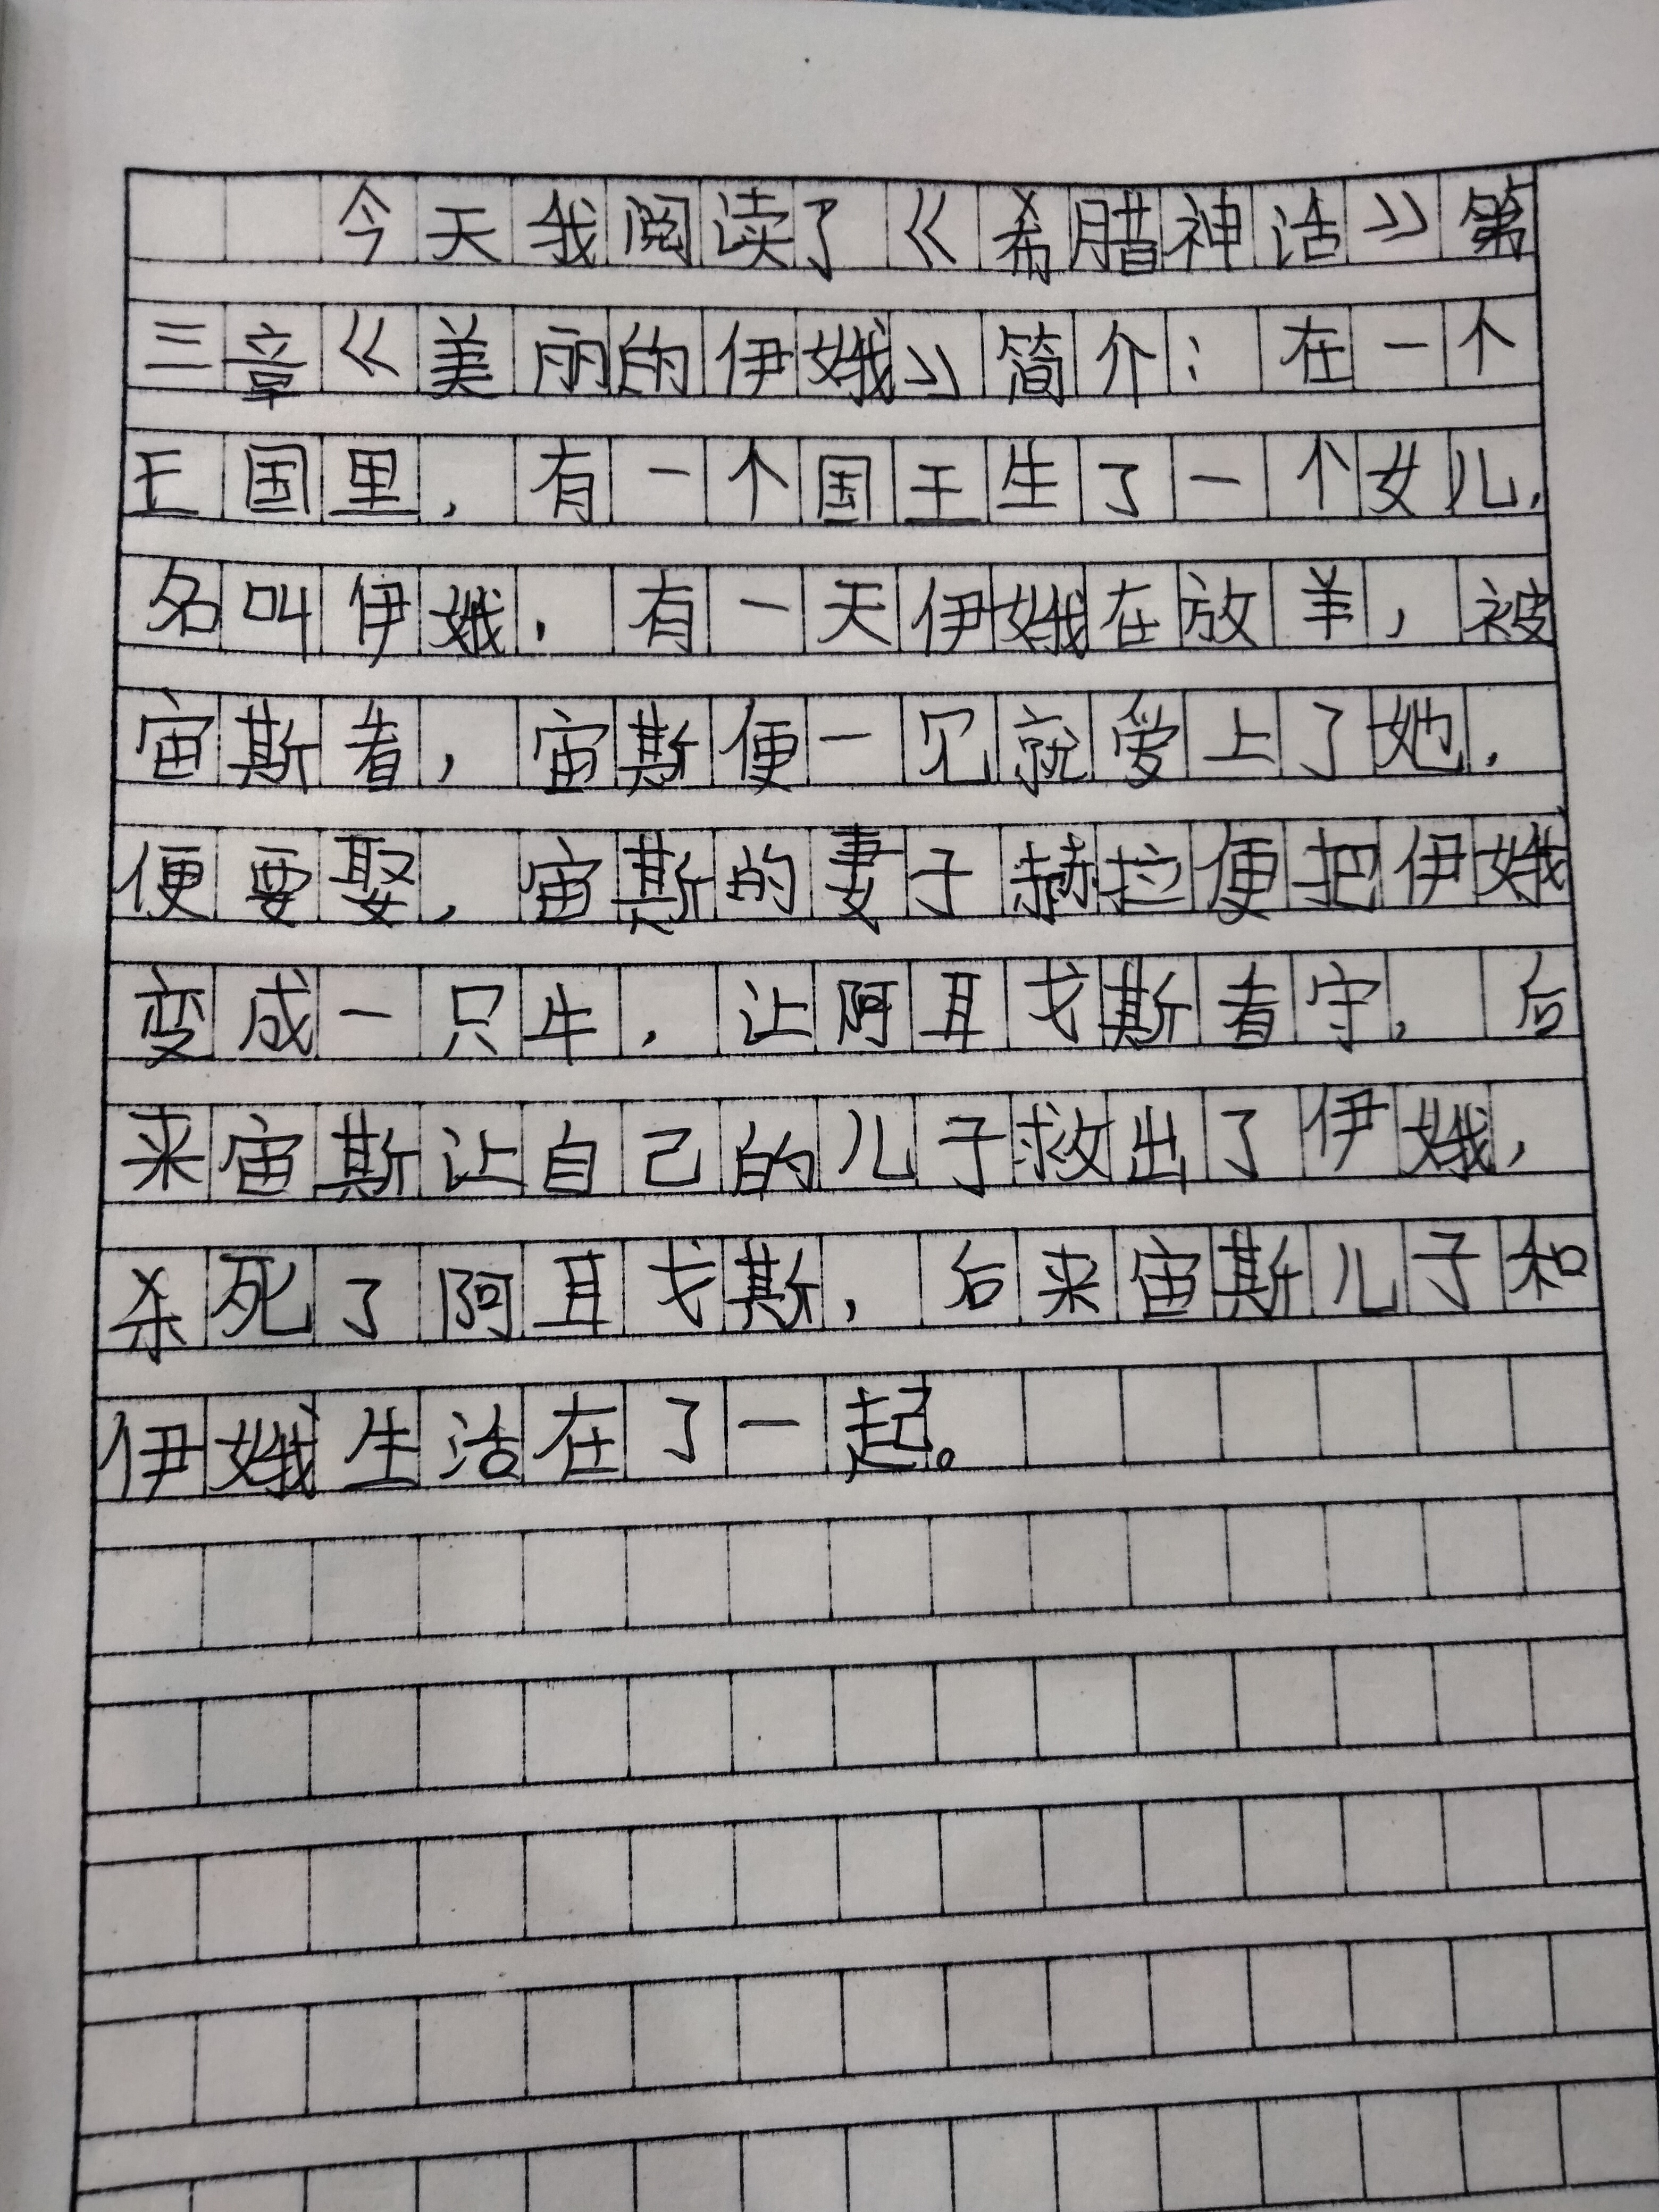 今天我阅读了《希腊神话》第
三章《美丽的伊娥》简介：在一个
王国里，有一个国王生了一个女儿，
名叫伊娥，有一天伊娥在放羊，被
宙斯看，宙斯便一见就爱上了她，
便要娶，宙斯的妻子赫拉便把伊娥
变成一只牛，让阿耳戈斯看守，后
来宙斯让自己的儿子救出了伊娥，
杀死了阿耳戈斯，后来宙斯儿子和
伊娥生活在了一起。